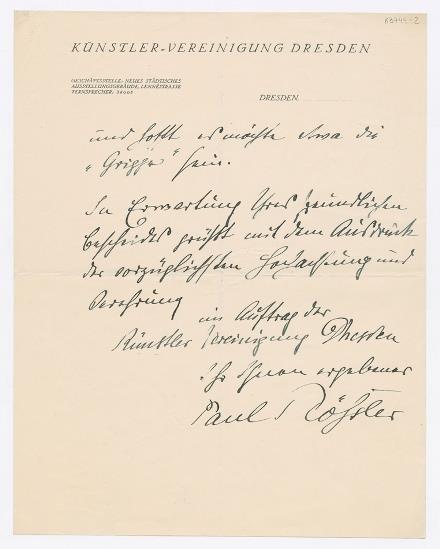 K3744-2
KÜNSTLER-VEREINIGUNG DRESDEN
GESCHÄFTSSTELLE: NEUES STÄDTISCHES
AUSSTELLUNGSGEBÄUDE, LENNÉSTRASSE
FERNSPRECHER:
DRESDEN,
und hofft es möchte etwa die
„Grippe“ sein.
In Erwartung Ihres freundlichen
Bescheides grüßt mit dem Ausdruck
der vorzüglichsten Hochachtung und
Verehrung
im Auftrag der
Künstler Vereinigung Dresden
Ihr Ihnen ergebener
Paul Rößler